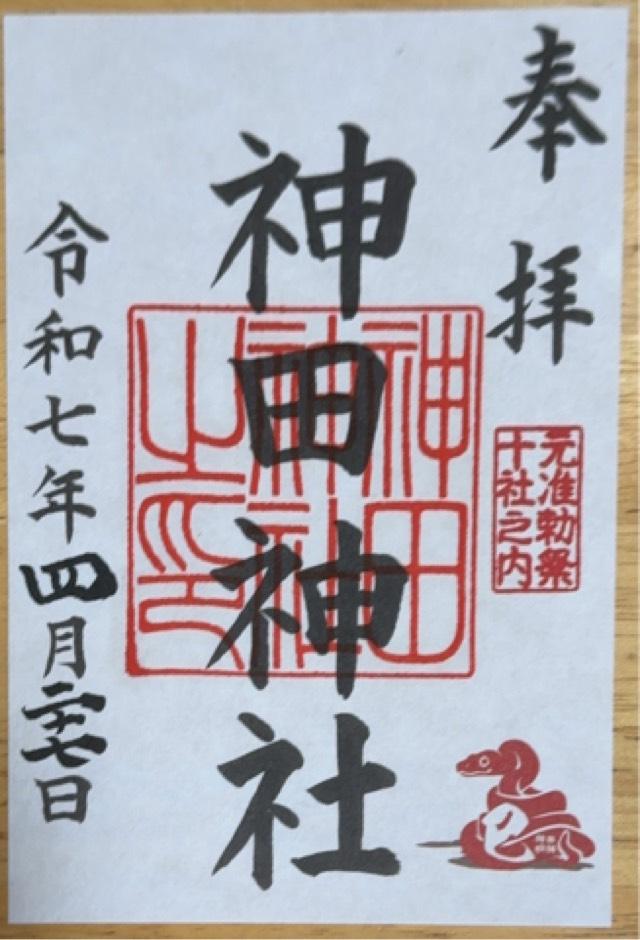 奉拝
元准勅祭
十社之内
神田神社
神田
神社
之印
令和七年四月二十七日
巳